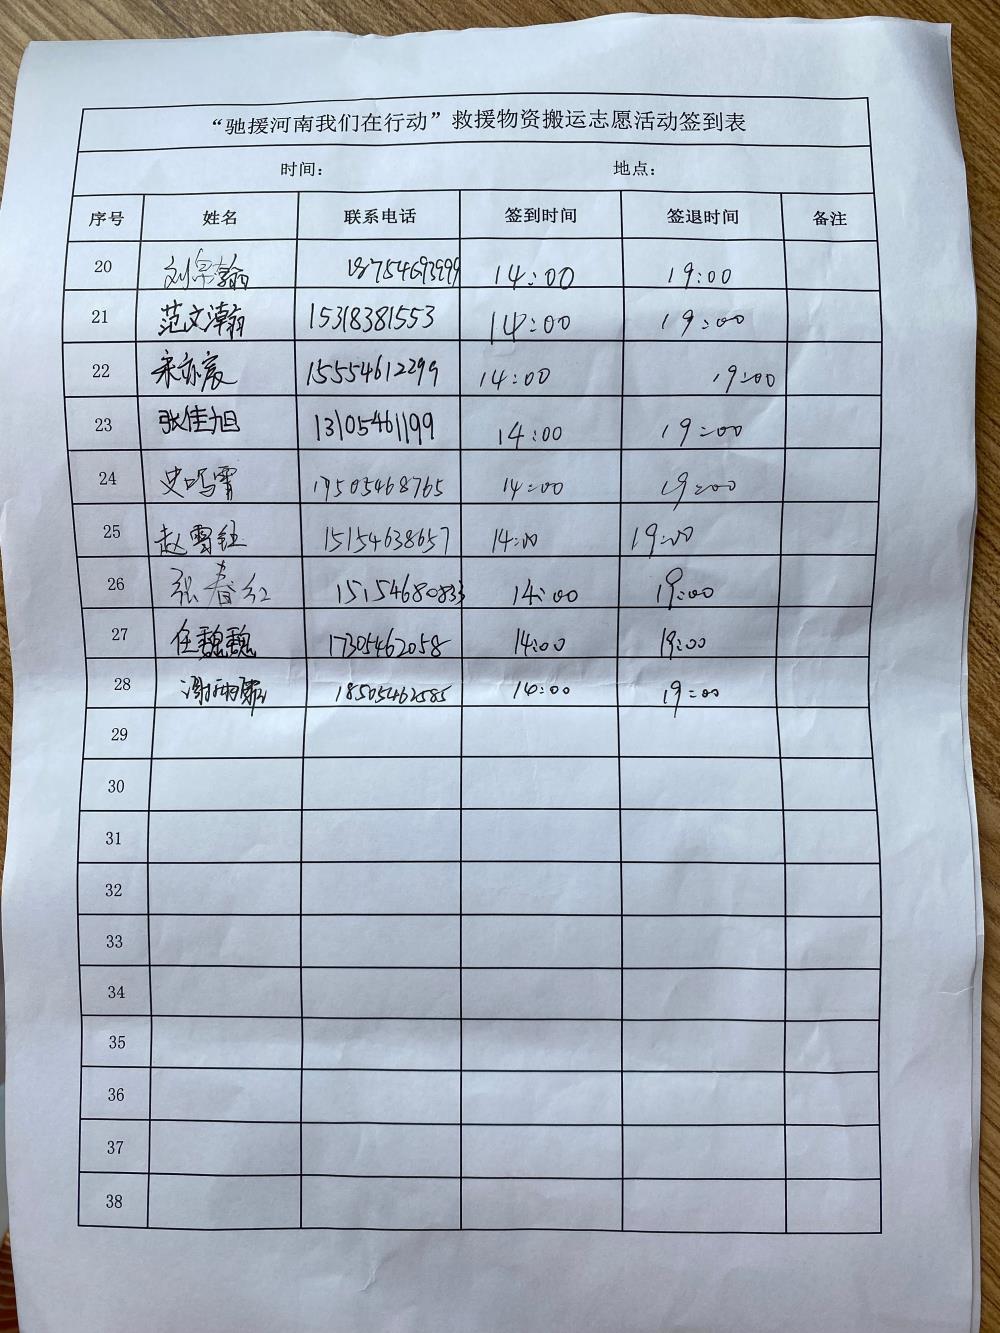 “驰援河南我们在行动”救援物资搬运志愿活动签到表
时间： 地点：
序号 姓名 联系电话 签到时间 签退时间 备注
20 刘 瀚 18754693999 14:00 19:00
21 范文瀚 15318381553 14:00 19:00
22 宋亦宸 15554612299 14:00 19:00
23 张佳旭 13105461199 14:00 19:00
24 史鸣霄 14:00 19:00
25 赵雪钰 15154638657 14:00 19:00
26 张春红 15154680833 14:00 19:00
27 任魏魏 17305462058 14:00 19:00
28 18505462585 14:00 19:00
29
30
31
32
33
34
35
36
37
38